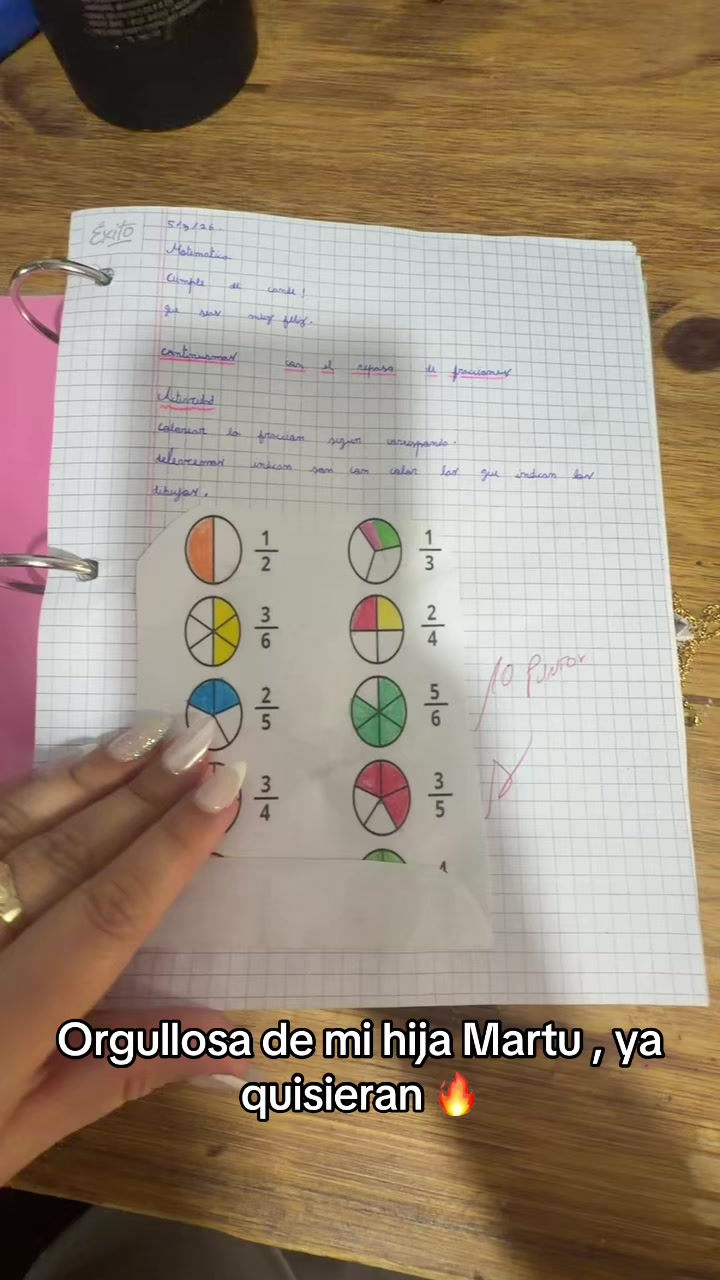 Éxito
5/3/26.
Matematica
Cumple de conde!
que seas muy feliz.
continuamos con el repaso de fracciones
Actividad
colorear la fraccion segun corresponda.
indican con color las que indican los
dibujos.
1/2 1/3
3/6 2/4
2/5 5/6
3/4 3/5
10 PUNTOS
Orgullosa de mi hija Martu , ya
quisieran 🔥